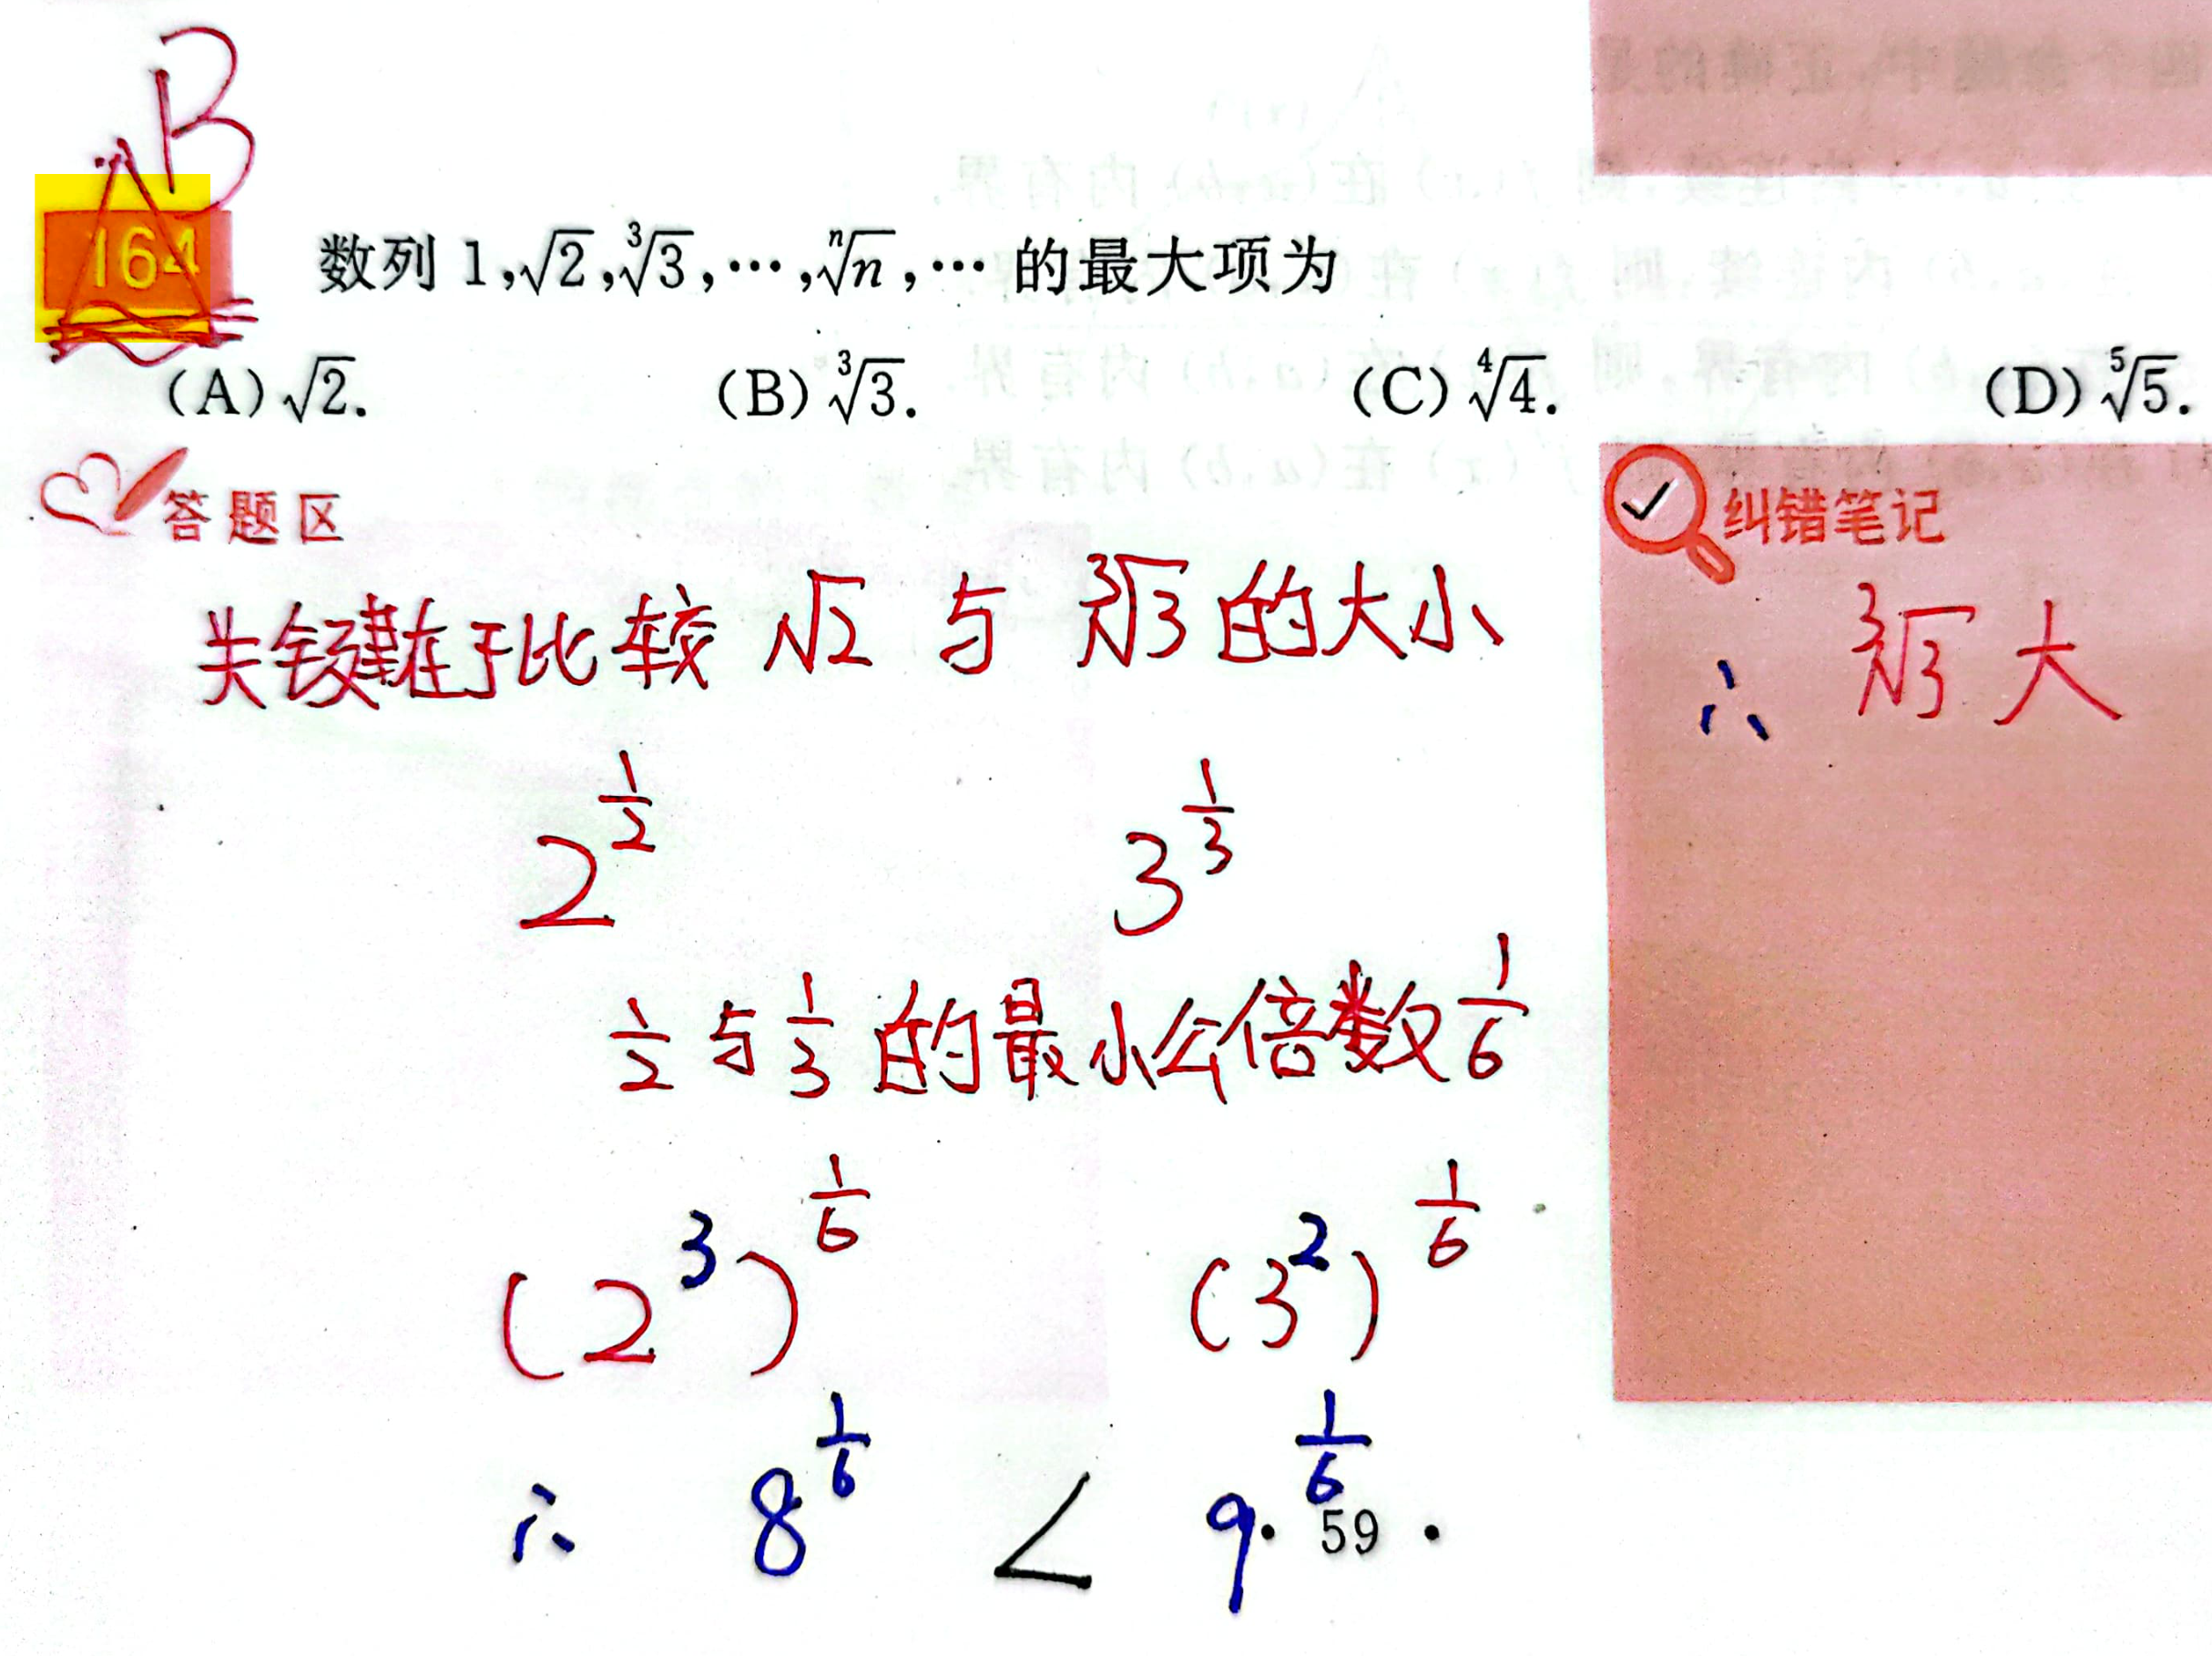 B
164 数列 1,√2,∛3,⋯,ⁿ√n,⋯ 的最大项为
(A) √2. (B) ∛3. (C) ∜4. (D) ⁵√5.
答题区
纠错笔记
关键在于比较 √2 与 ∛3 的大小
∴ ∛3 大
2^{1/2} 3^{1/3}
1/2 与 1/3 的最小公倍数 1/6
(2^3)^{1/6} (3^2)^{1/6}
∴ 8^{1/6} < 9^{1/6}
· 59 ·